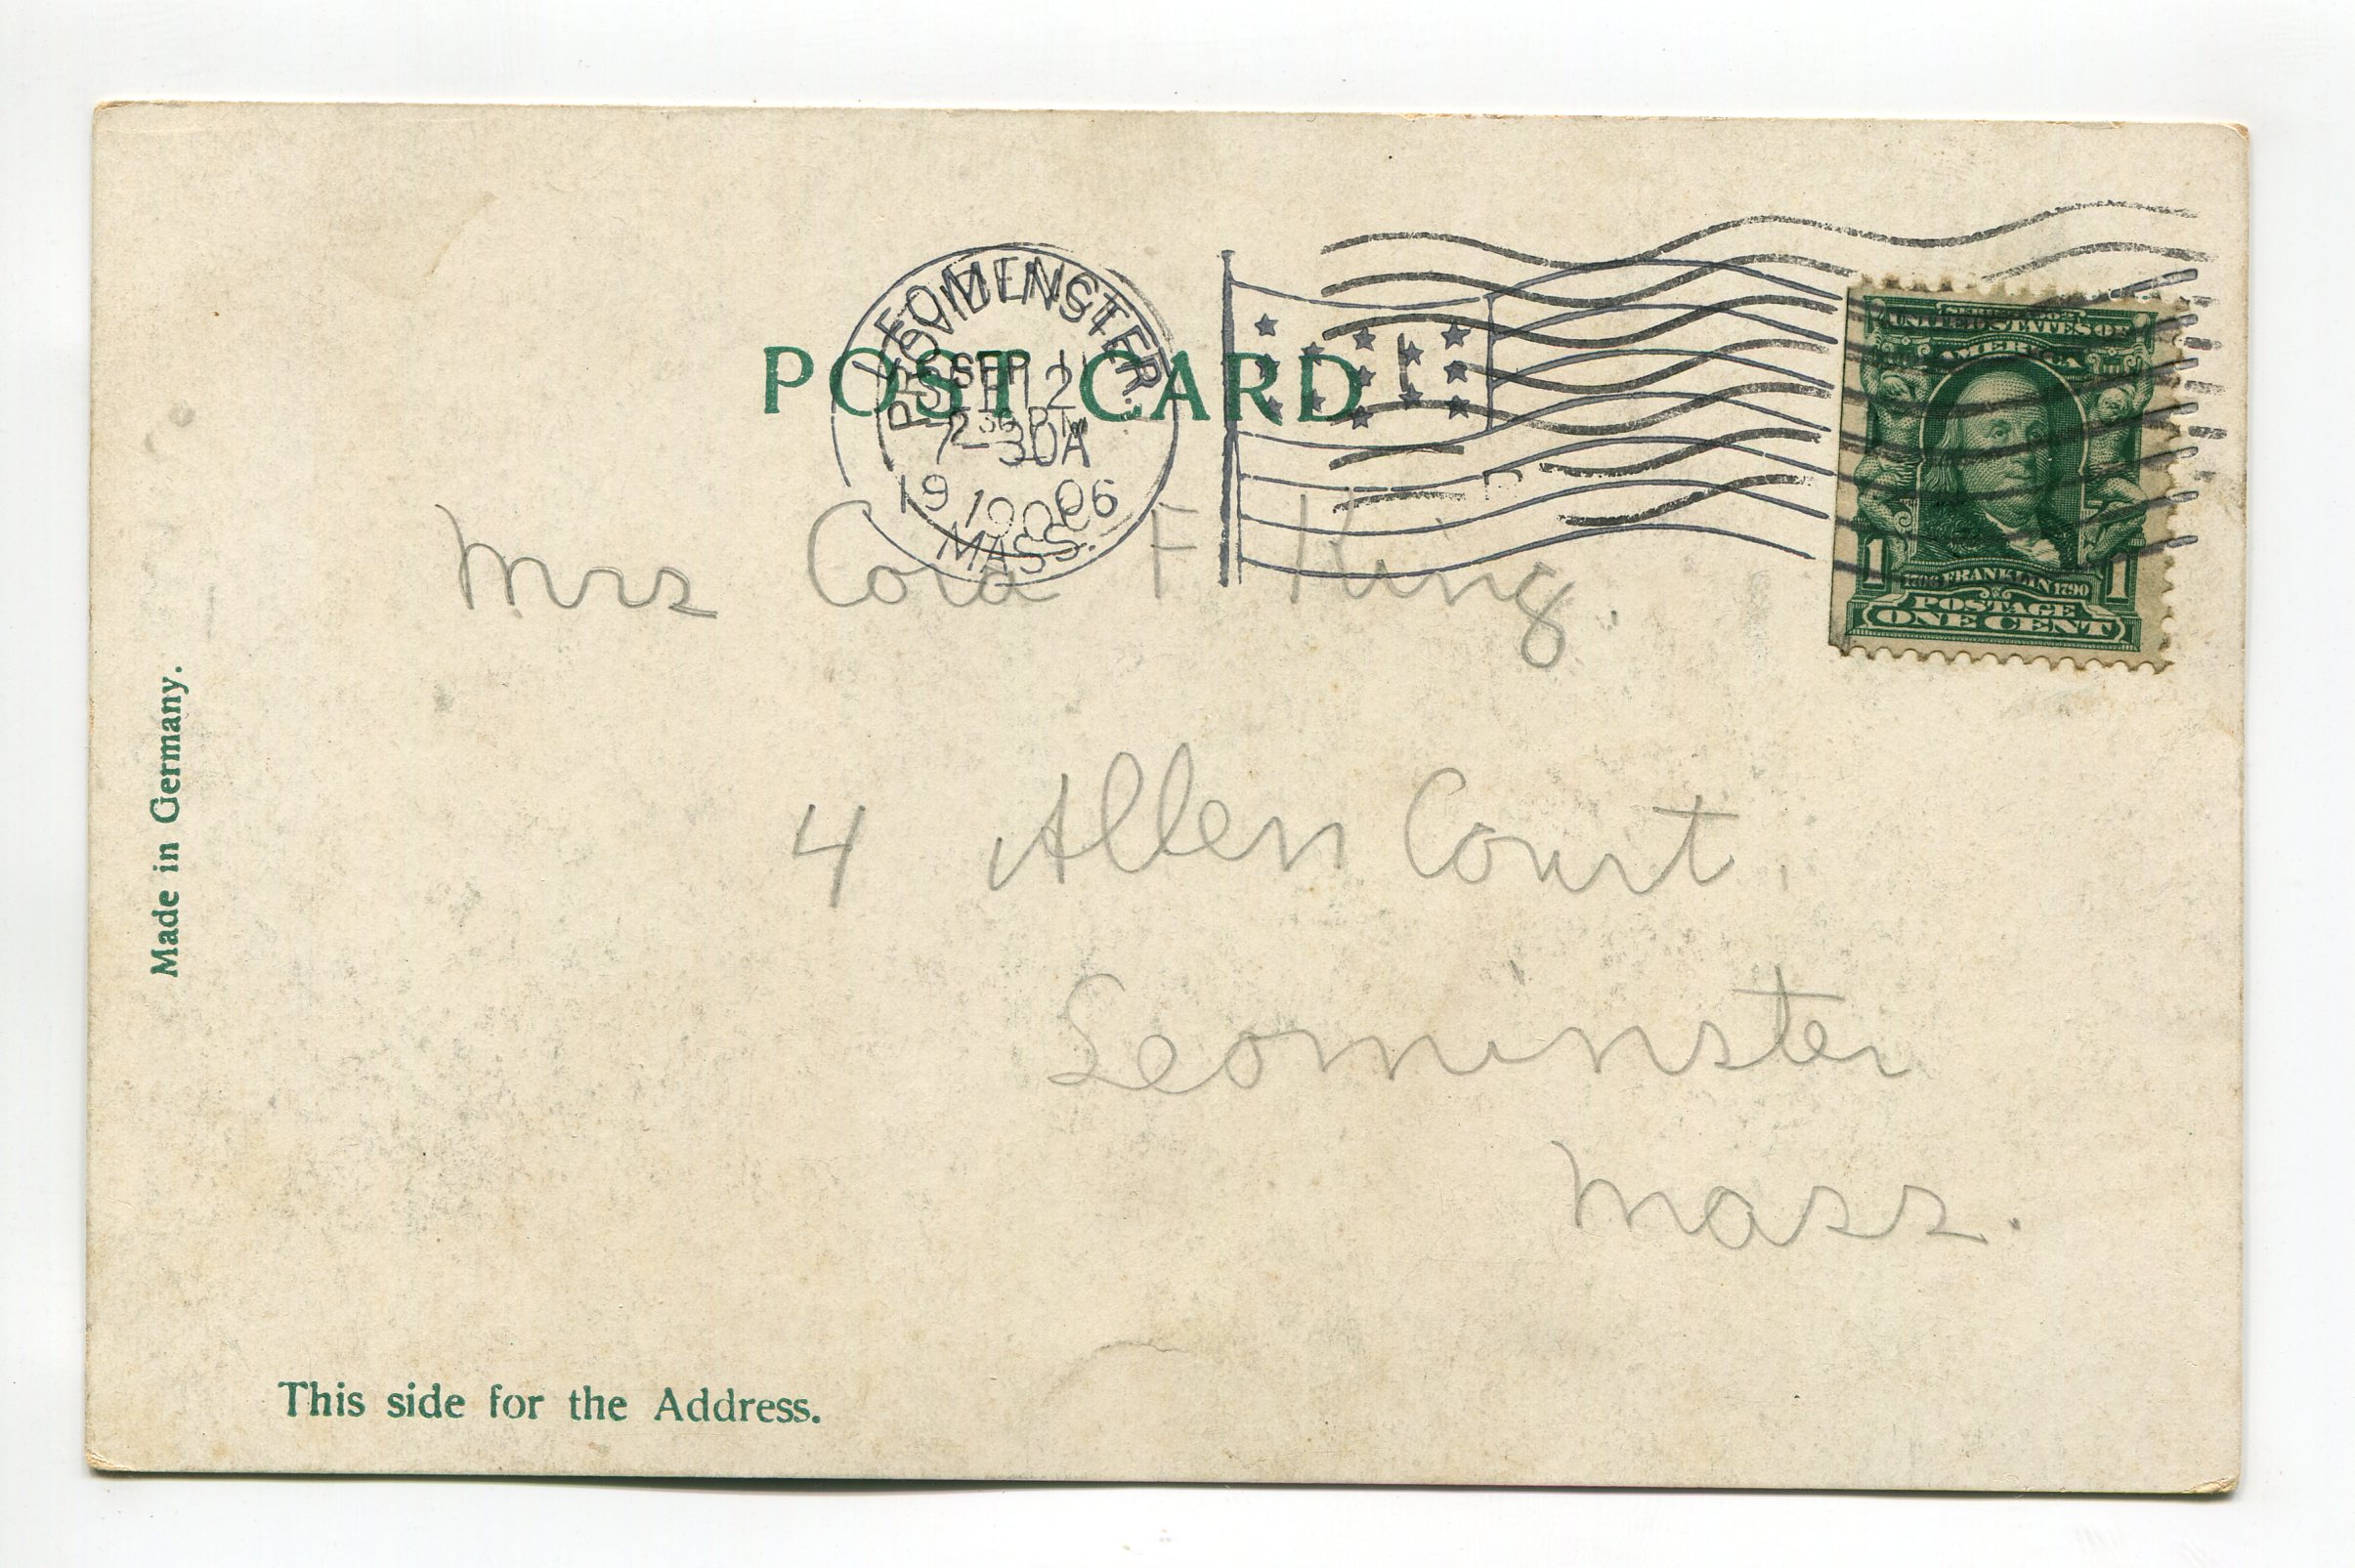 POST CARD
LEOMINSTER
PROVIDENCE
SEP 11
SEP 12
7-30A
19 06
1906
MASS.
SERIES 1902
UNITED STATES OF
AMERICA
1 1706 FRANKLIN 1790 1
POSTAGE
ONE CENT
Mrs Cora F King.
4 Allen Court,
Leominster
Mass.
Made in Germany.
This side for the Address.